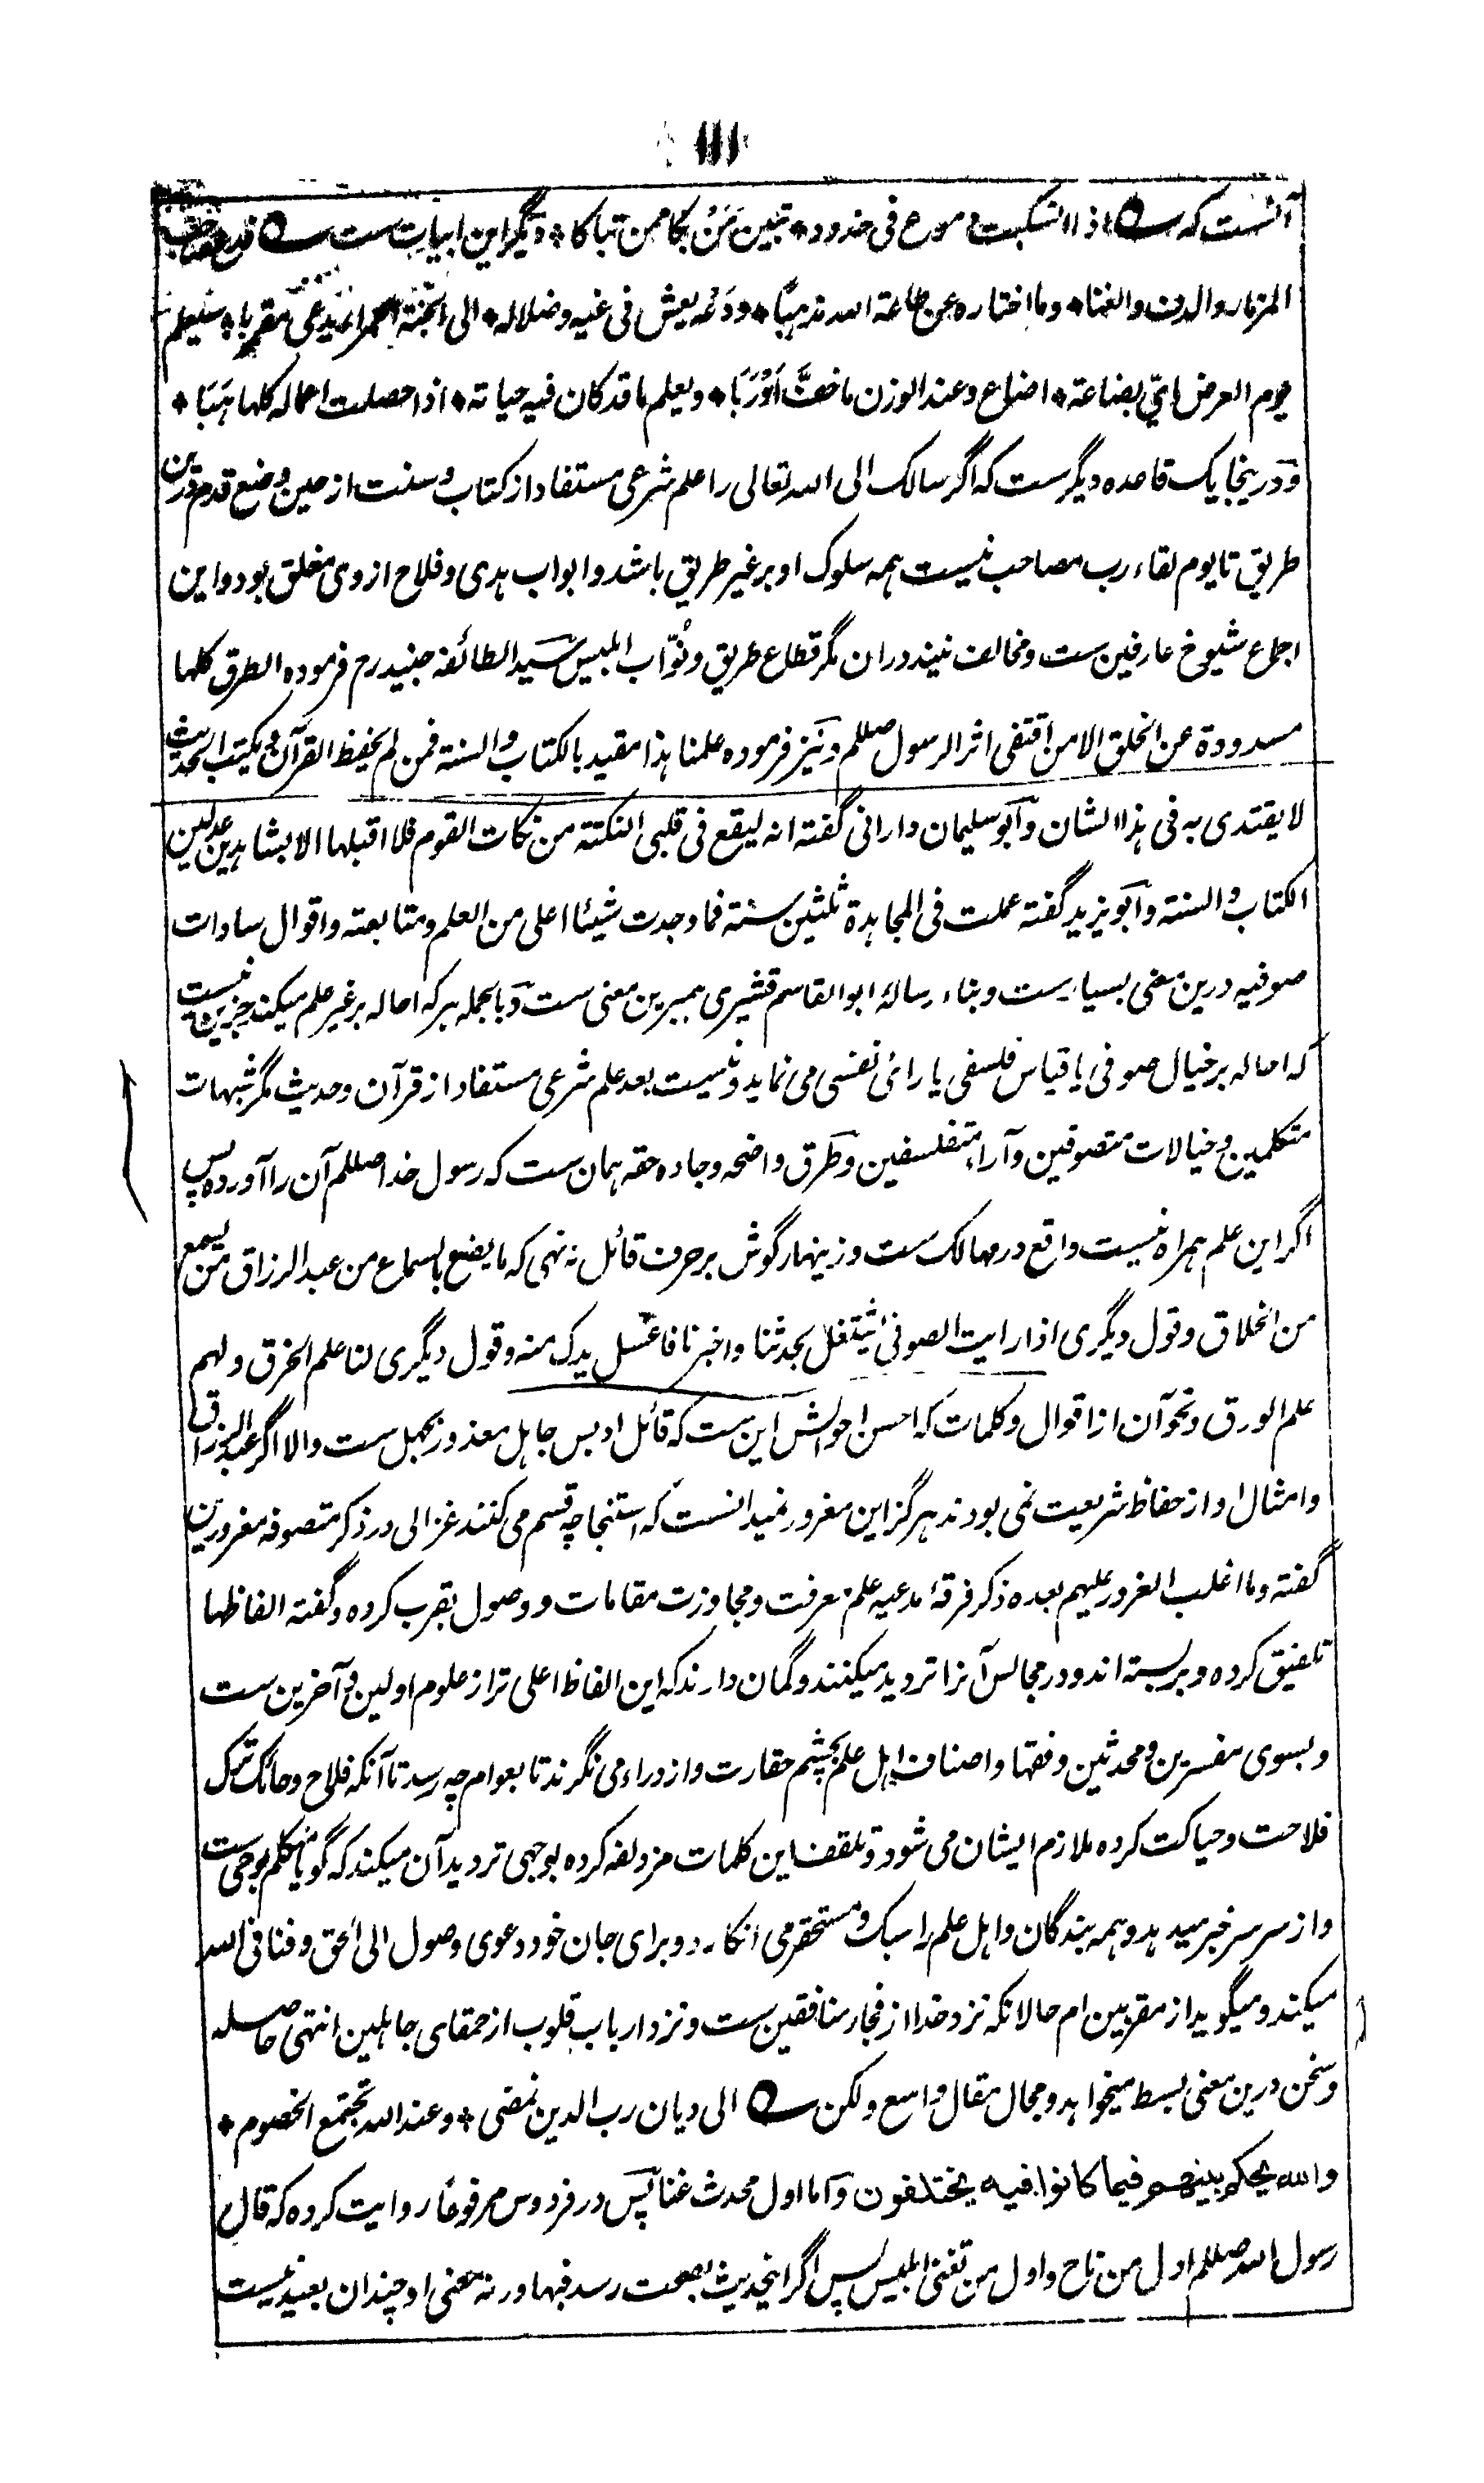 ۱۱۱
آنست که اذا انسکبت دموع فی خدود * تبین من بکا ممن تباکا * و دیگر این ابیات ست فدع صاحب
المزمار والدف والغنا * وما اختاره عن طاعة الله مذهبا * ودعه یعیش فی غیه وضلاله * الی الجنة الحمراء یدعی مقربا * سیعلم
یوم العرض ای بضاعة * اضاع وعند الوزن ما خف او ربا * ویعلم ما قد کان فیه حیاته * اذا حصلت اعماله کلها هبا *
و درینجا یک قاعده دیگرست که اگر سالک الی الله تعالی را علم شرعی مستفاد از کتاب و سنت از حین وضع قدم درین
طریق تا یوم لقاء رب مصاحب نیست همه سلوک او بر غیر طریق باشد و ابواب هدی و فلاح از وی مغلق بود و این
اجماع شیوخ عارفین ست و مخالف نیند دران مگر قطاع طریق و نواب ابلیس سید الطائفه جنید رح فرموده الطرق کلها
مسدودة عن الخلق الا من اقتفی اثر الرسول صللم و نیز فرموده علمنا هذا مقید بالکتاب والسنة فمن لم یحفظ القرآن و یکتب الحدیث
لا یقتدی به فی هذا الشان و ابو سلیمان دارانی گفته انه لیقع فی قلبی النکتة من نکات القوم فلا اقبلها الا بشاهدین عدلین
الکتاب والسنة و ابو یزید گفته عملت فی المجاهدة ثلثین سنة فما وجدت شیئا اعلی من العلم و متابعته و اقوال سادات
صوفیه درین معنی بسیارست و بناء رسالهٔ ابو القاسم قشیری همبرین معنی ست و بالجمله هرکه احاله بر غیر علم میکند جز این نیست
که احاله بر خیال صوفی یا قیاس فلسفی یا رائی نفسی می نماید و نیست بعد علم شرعی مستفاد از قرآن و حدیث مگر شبهات
متکلمین و خیالات متصوفین و آراء متفلسفین و طرق واضحه و جاده حقه همان ست که رسول خدا صللم آن را آورده پس
اگر این علم همراه نیست واقع در مهالک ست و زینهار گوش بر حرف قائل نه نهی که ما یصنع بالسماع من عبد الرزاق من یسمع
من الخلاق و قول دیگری اذا رایت الصوفی یشتغل بحدثنا و اخبرنا فاغسل یدک منه و قول دیگری لنا علم الخرق و لهم
علم الورق و نحو آن از اقوال و کلمات که احسن احوالش این ست که قائل او بس جاهل معذور بجهل ست والا اگر عبد الرزاق
و امثال او از حفاظ شریعت نمی بودند هرگز این مغرور نمیدانست که استنجا چه قسم می کنند غزالی در ذکر متصوفه مغرورین
گفته وما اغلب الغرور علیهم بعده ذکر فرقهٔ مدعیه علم معرفت و مجاوزت مقامات و وصول بقرب کرده و گفته الفاظها
تلفیق کرده و بربسته اند و در مجالس آنرا تردید میکنند و گمان دارند که این الفاظ اعلی تر از علوم اولین و آخرین ست
و بسوی مفسرین و محدثین و فقها و اصناف اهل علم بچشم حقارت و ازدراء می نگرند تا بعوام چه رسد تا آنکه فلاح و حائک ترک
فلاحت و حیاکت کرده ملازم ایشان می شود و تلقف این کلمات مزدلفه کرده بوجهی تردید آن میکند که گویا متکلم بوحی ست
و از سر سر خبر میدهد و همه بندگان و اهل علم را سبک و مستحقر می انگارد و برای جان خود دعوی وصول الی الحق و فنا فی الله
میکند و میگوید از مقربین ام حالانکه نزد خدا از فجار منافقین ست و نزد ارباب قلوب از حمقای جاهلین انتهی حاصله
و سخن درین معنی بسط میخواهد و مجال مقال واسع ولکن الی دیان رب الدین نمضی * وعند الله تجتمع الخصوم *
والله یحکم بینهم فیما کانوا فیه یختلفون و اما اول محدث غنا پس در فردوس مرفوعا روایت کرده که قال
رسول الله صللم اول من ناح و اول من تغنی ابلیس پس اگر این حدیث بصحت رسد فبها ور نه معنی او چندان بعید نیست